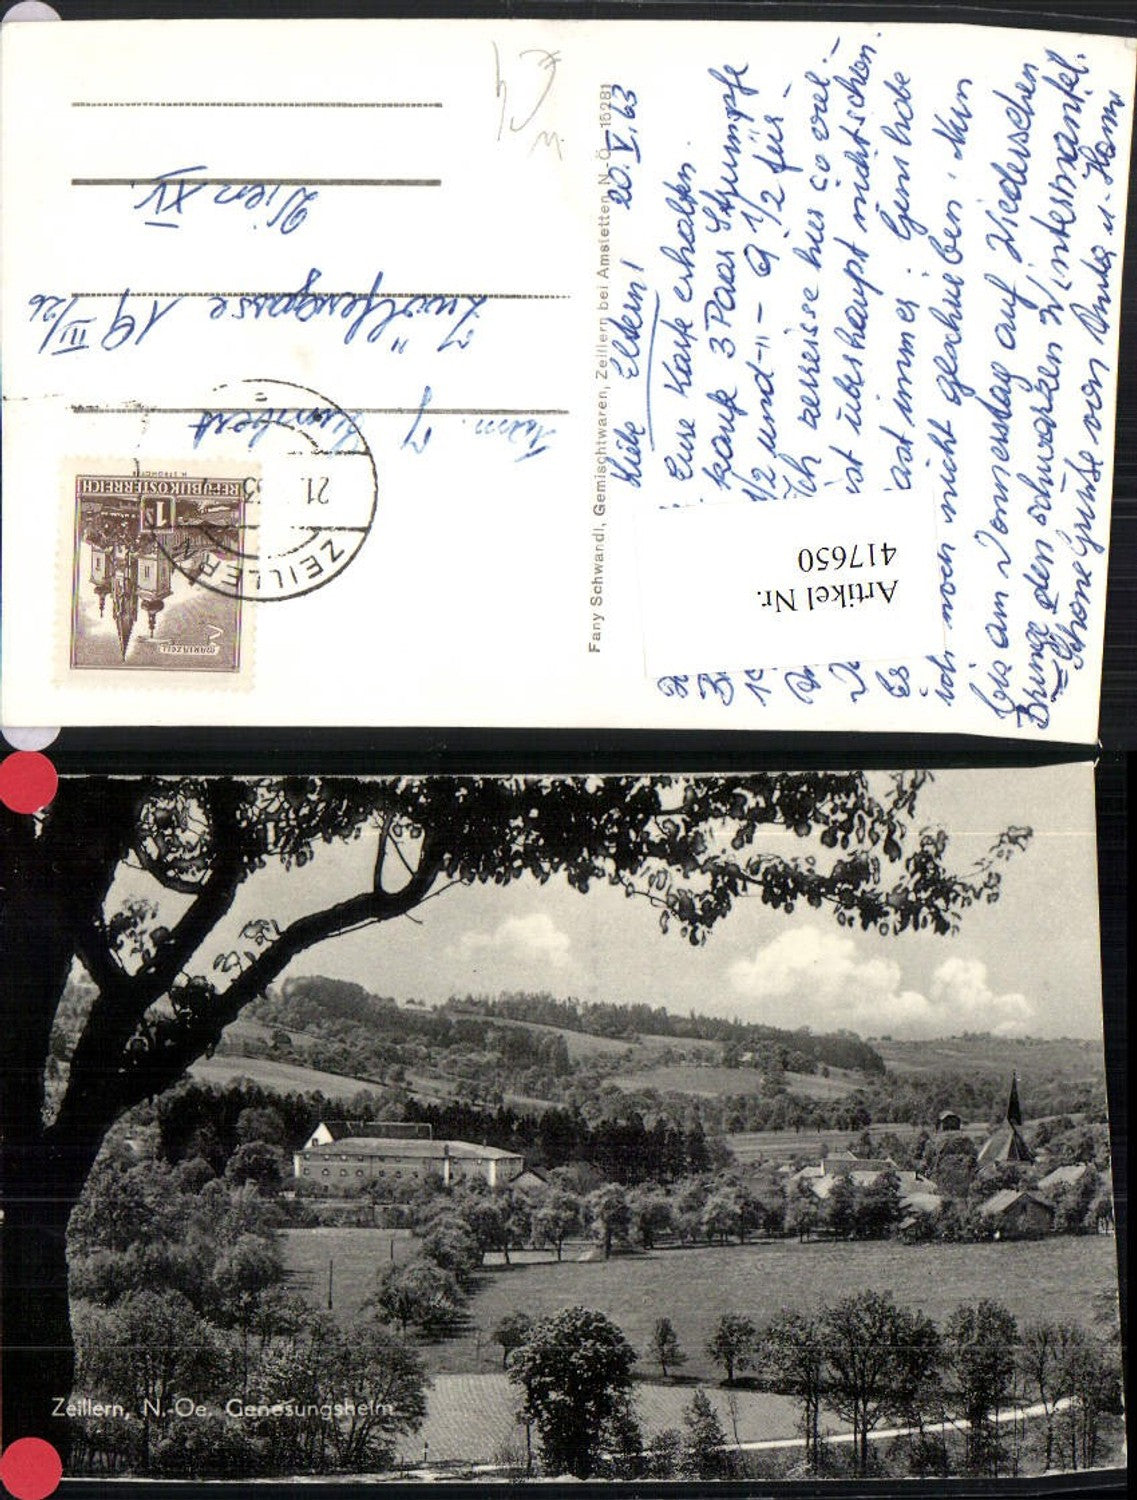 Liebe Eltern! 20. V. 63
Eure Karte erhalten.
kaufe 3 Paar Strümpfe
1/2 und -"- 9 1/2 für
Ich zerreisse hier so viel.-
ist überhaupt nicht schön.
Es ast immer. Gerti habe
ich noch nicht geschrieben. Nun
bis am Donnerstag auf Wiedersehen
Bringe den schwarzen Wintermantel.
Schöne Grüsse von Anna u. Hans
Fany Schwandl, Gemischtwaren, Zeillern bei Amstetten, N.-Ö. 15281
Fam.
Zwölfergasse 19 III/26
Wien XV.
REPUBLIK ÖSTERREICH
1 S
MARIAZELL
ZEILLERN
21.
63
Artikel Nr.
417650
Zeillern, N.-Oe. Genesungsheim